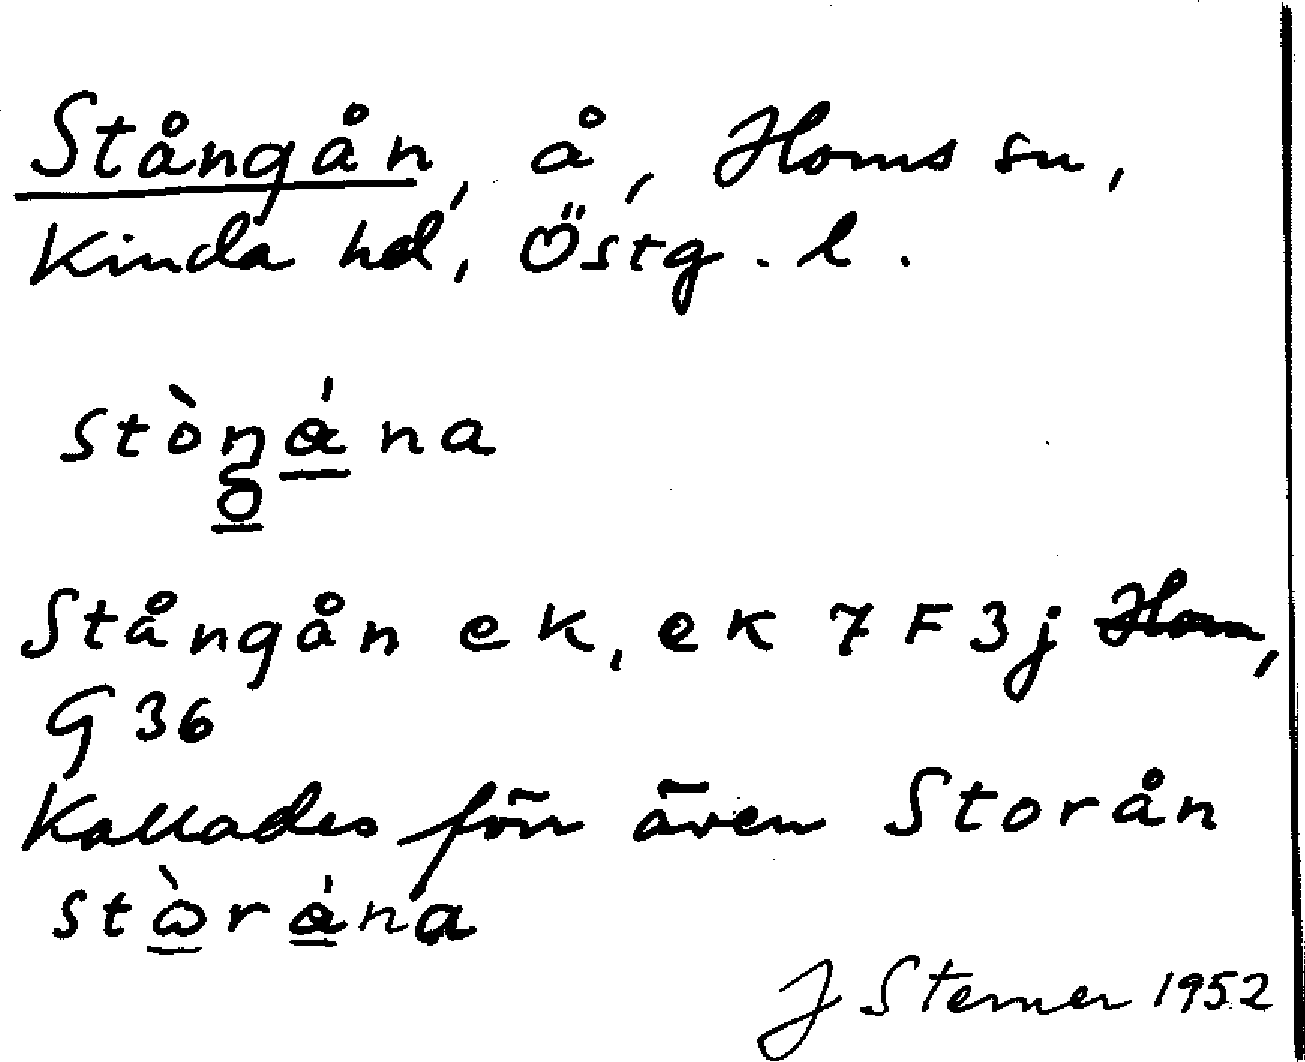 Stångån, å, Homs sn,
Kinda hd, Östg. l.
Stångån ek, ek 7 F 3j Hom,
G 36
Kallades förr även Storån
J Sterner 1952